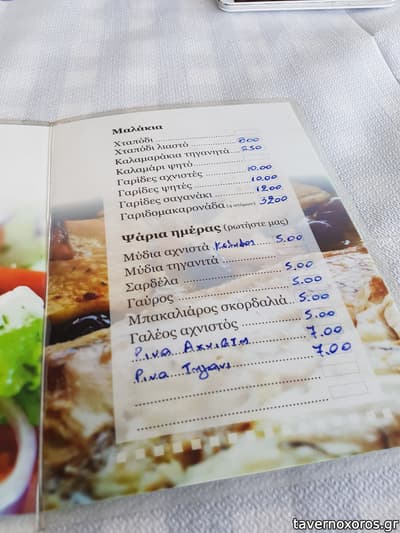 Μαλάκια
Χταπόδι
Χταπόδι λιαστό 8.00
Καλαμαράκια τηγανητά 7.50
Καλαμάρι ψητό
Γαρίδες αχνιστές 10.00
Γαρίδες ψητές 10.00
Γαρίδες σαγανάκι 12.00
Γαριδομακαρονάδα 32.00
Ψάρια ημέρας (ρωτήστε μας)
Μύδια αχνιστά 5.00
Μύδια τηγανιτά
Σαρδέλα 5.00
Γαύρος 5.00
Μπακαλιάρος σκορδαλιά 5.00
Γαλέος αχνιστός 5.00
Ρινα Αχνιστη 7.00
Ρινα Τηγανι 7.00
tavernoxoros.gr